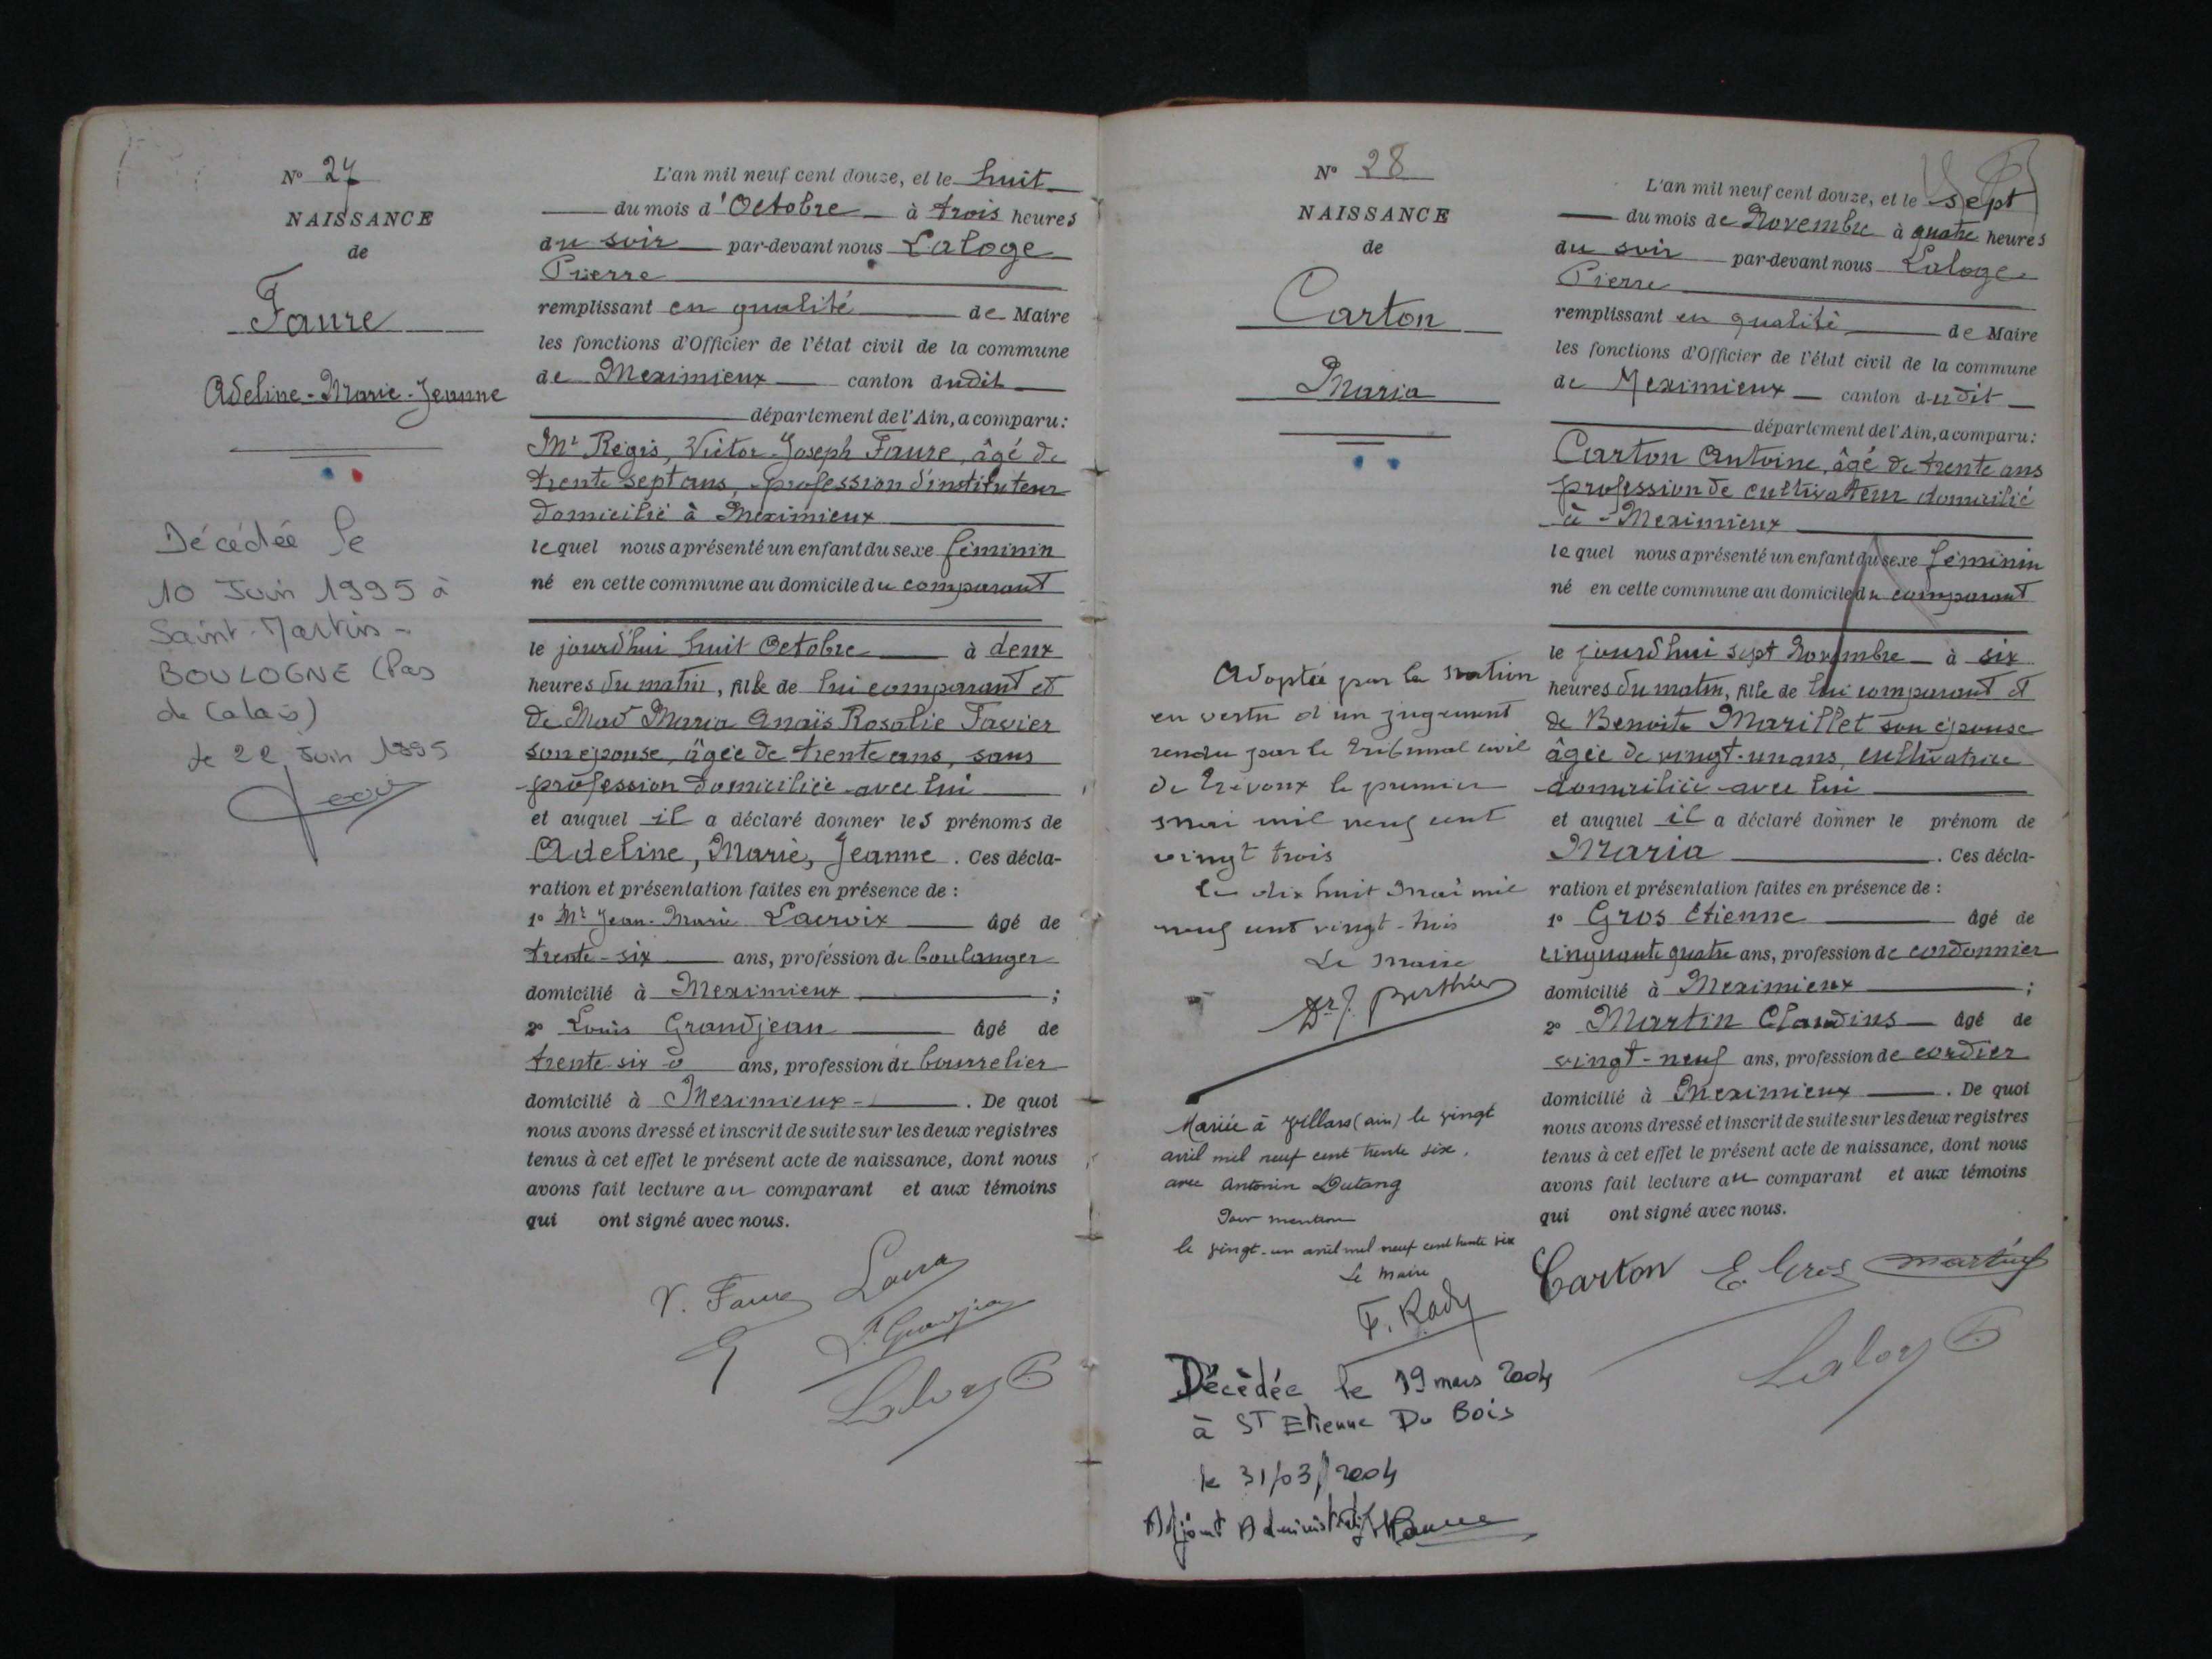 N° 27
NAISSANCE
de
Faure
Adeline-Marie-Jeanne
Décédée le
10 Juin 1995 à
Saint-Martin-
BOULOGNE (Pas
de Calais)
le 22 Juin 1995
L'an mil neuf cent douze, et le huit
du mois d'Octobre à trois heures
du soir par-devant nous Laloge
Pierre
remplissant en qualité de Maire
les fonctions d'Officier de l'état civil de la commune
de Meximieux canton dudit
département de l'Ain, a comparu:
Mr Régis, Victor-Joseph Faure, âgé de
trente sept ans, profession d'instituteur
domicilié à Meximieux
lequel nous a présenté un enfant du sexe féminin
né en cette commune au domicile du comparant
le jourd'hui huit Octobre à deux
heures du matin, fille de lui comparant et
de Mad Maria Anaïs Rosalie Favier
son épouse, âgée de trente ans, sans
profession domiciliée avec lui
et auquel il a déclaré donner les prénoms de
Adeline, Marie, Jeanne. Ces décla-
ration et présentation faites en présence de :
1° Mr Jean-Marie Lacroix âgé de
trente-six ans, profession de boulanger
domicilié à Meximieux ;
2° Louis Grandjean âgé de
trente-six ans, profession de bourrelier
domicilié à Meximieux. De quoi
nous avons dressé et inscrit de suite sur les deux registres
tenus à cet effet le présent acte de naissance, dont nous
avons fait lecture au comparant et aux témoins
qui ont signé avec nous.
V. Faure
L. Grandjean
N° 28
NAISSANCE
de
Carton
Maria
Adoptée par la nation
en vertu d'un jugement
rendu par le Tribunal civil
de Trévoux le premier
mai mil neuf cent
vingt trois
Le dix huit Mai mil
neuf cent vingt-trois
Le Maire
Dr J. Berthier
Mariée à Villars (ain) le vingt
avril mil neuf cent trente six,
avec Antonin Dutang
Pour mention
le vingt-un avril mil neuf cent trente six
Le Maire
Décédée le 19 mars 2004
à ST Etienne Du Bois
le 31/03/2004
Adjoint Administratif
L'an mil neuf cent douze, et le sept
du mois de Novembre à quatre heures
du soir par-devant nous Laloge
Pierre
remplissant en qualité de Maire
les fonctions d'Officier de l'état civil de la commune
de Meximieux canton dudit
département de l'Ain, a comparu:
Carton Antoine, âgé de trente ans
profession de cultivateur domicilié
à Meximieux
lequel nous a présenté un enfant du sexe féminin
né en cette commune au domicile du comparant
le jourd'hui sept Novembre à six
heures du matin, fille de lui comparant et
de Benoite Marillet son épouse
âgée de vingt-un ans, cultivatrice
domiciliée avec lui
et auquel il a déclaré donner le prénom de
Maria. Ces décla-
ration et présentation faites en présence de :
1° Gros Etienne âgé de
cinquante quatre ans, profession de cordonnier
domicilié à Meximieux ;
2° Martin Claudius âgé de
vingt-neuf ans, profession de cordier
domicilié à Meximieux. De quoi
nous avons dressé et inscrit de suite sur les deux registres
tenus à cet effet le présent acte de naissance, dont nous
avons fait lecture au comparant et aux témoins
qui ont signé avec nous.
Carton E. Gros Martin